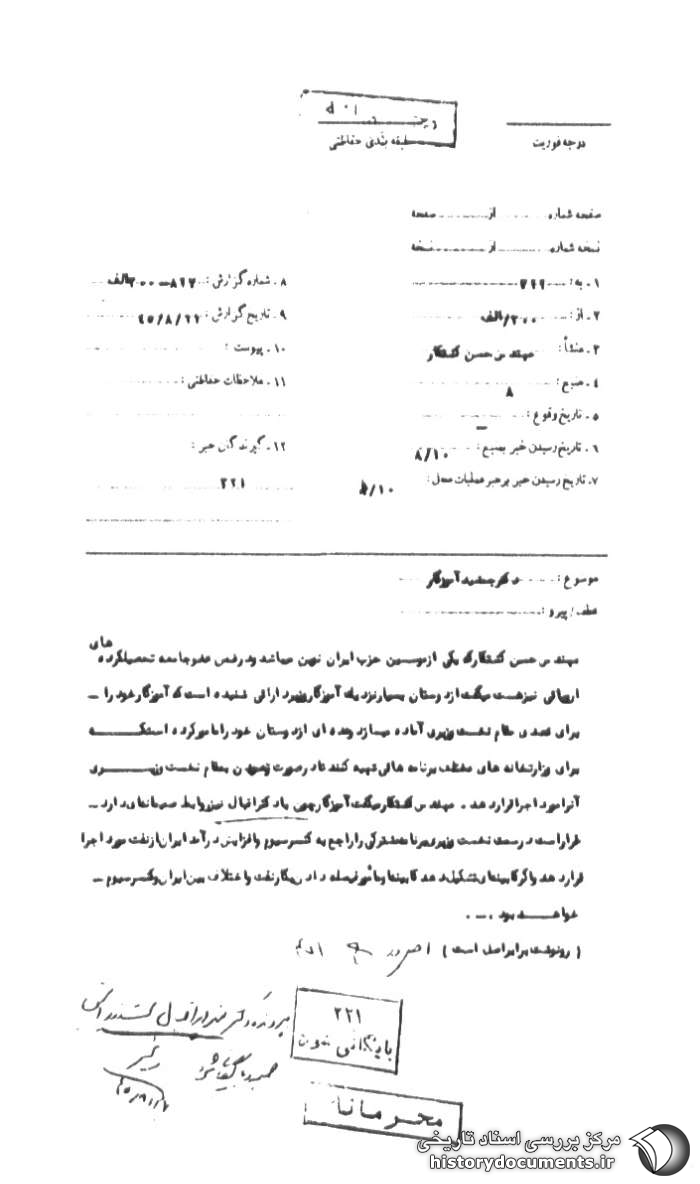 طبقه بندی حفاظتی
درجه فوریت
صفحه شماره ........ از ........ صفحه
نسخه شماره ........ از ........ نسخه
۱ـ به : ........
۲ـ از : ۳۰۰/الف
۳ـ منشأ : مهندس حسن کشتکار
۴ـ منبع : ۸
۵ـ تاریخ وقوع : ـ
۶ـ تاریخ رسیدن خبر بمنبع : ۸/۱۰
۷ـ تاریخ رسیدن خبر برهبر عملیات محل :
۸ـ شماره گزارش :
۹ـ تاریخ گزارش :
۱۰ـ پیوست :
۱۱ـ ملاحظات حفاظتی :
۱۲ـ گیرندگان خبر :
۲۲۱
موضوع : دکتر جمشید آموزگار
عطف / پیرو :
مهندس حسن کشتکار که یکی از موسسین حزب ایران نوین میباشد و در ضمن عضو جامعه تحصیلکرده های
اروپائی نیز هست میگفت از دوستان بسیار نزدیک آموزگار وزیر دارائی شنیده است که آموزگار خود را ـ
برای تصدی مقام نخست وزیری آماده میسازد و عده ای از دوستان خود را مامور کرده است که
برای وزارتخانه های مختلف برنامه هائی تهیه کنند تا در صورت رسیدن بمقام نخست وزیری
آنرا مورد اجرا قرار دهد . مهندس کشتکار میگفت آموزگار چون با دکتر اقبال نیز روابط صمیمانه ای دارد ـ
قرار است در سمت نخست وزیری برنامه مشترکی را راجع به کنسرسیوم و افزایش درآمد ایران از نفت مورد اجرا
قرار دهد و اگر کابینه ای تشکیل دهد کابینه او مأمور فیصله دادن بکار نفت و اختلاف بین ایران و کنسرسیوم ـ
خواهد بود . ـ .
( رونوشت برابر اصل است )
۲۲۱
بایگانی شود
پرونده دکتر منوچهر اقبال
محرمانه
مرکز بررسی اسناد تاریخی
historydocuments.ir